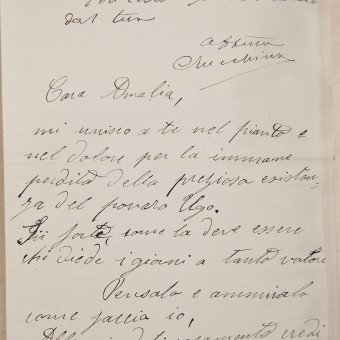 dal tuo
Cara Amalia,
mi unisco a te nel pianto e
nel dolore per la immane
perdita della preziosa esisten-
za del povero Ugo.
Sii forte, come la deve essere
chi diede i giorni a tanto valore
Pensalo e ammiralo
come faccio io,
credi